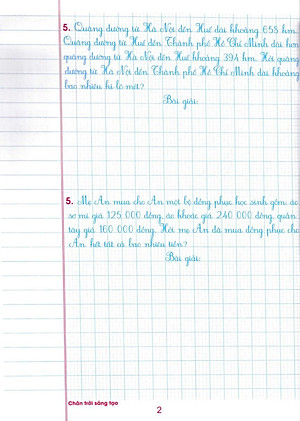 5. Quãng đường từ Hà Nội đến Huế dài khoảng 658 km.
Quãng đường từ Huế đến Thành phố Hồ Chí Minh dài hơn
quãng đường từ Hà Nội đến Huế khoảng 394 km. Hỏi quãng
đường từ Hà Nội đến Thành phố Hồ Chí Minh dài khoảng
bao nhiêu ki lô mét?
Bài giải:
5. Mẹ An mua cho An một bộ đồng phục học sinh gồm: áo
sơ mi giá 125 000 đồng, áo khoác giá 240 000 đồng, quần
tây giá 160 000 đồng. Hỏi mẹ An đã mua đồng phục cho
An hết tất cả bao nhiêu tiền?
Bài giải:
Chân trời sáng tạo
2